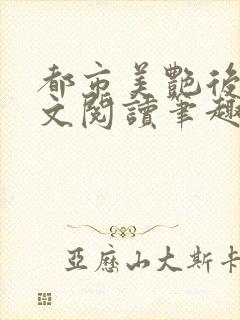 都市美艷後
文閱讀筆趣
亞歷山大斯卡